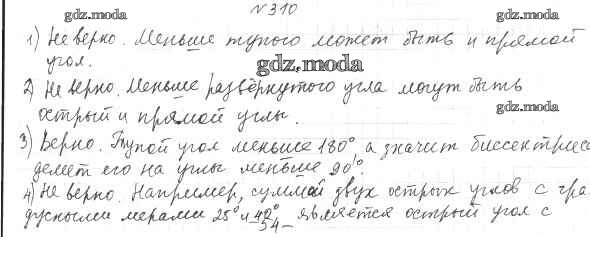 № 310
gdz.moda gdz.moda
1) Не верно. Меньше тупого может быть и прямой
угол.
gdz.moda
2) Не верно. Меньше развёрнутого угла могут быть
острый и прямой углы.
gdz.moda
3) Верно. Тупой угол меньше 180°, а значит биссектриса
делет его на углы меньше 90°.
4) Не верно. Например, суммой двух острых углов с гра-
gdz.moda gdz.moda
дусными мерами 25° и 42° является острый угол с
54